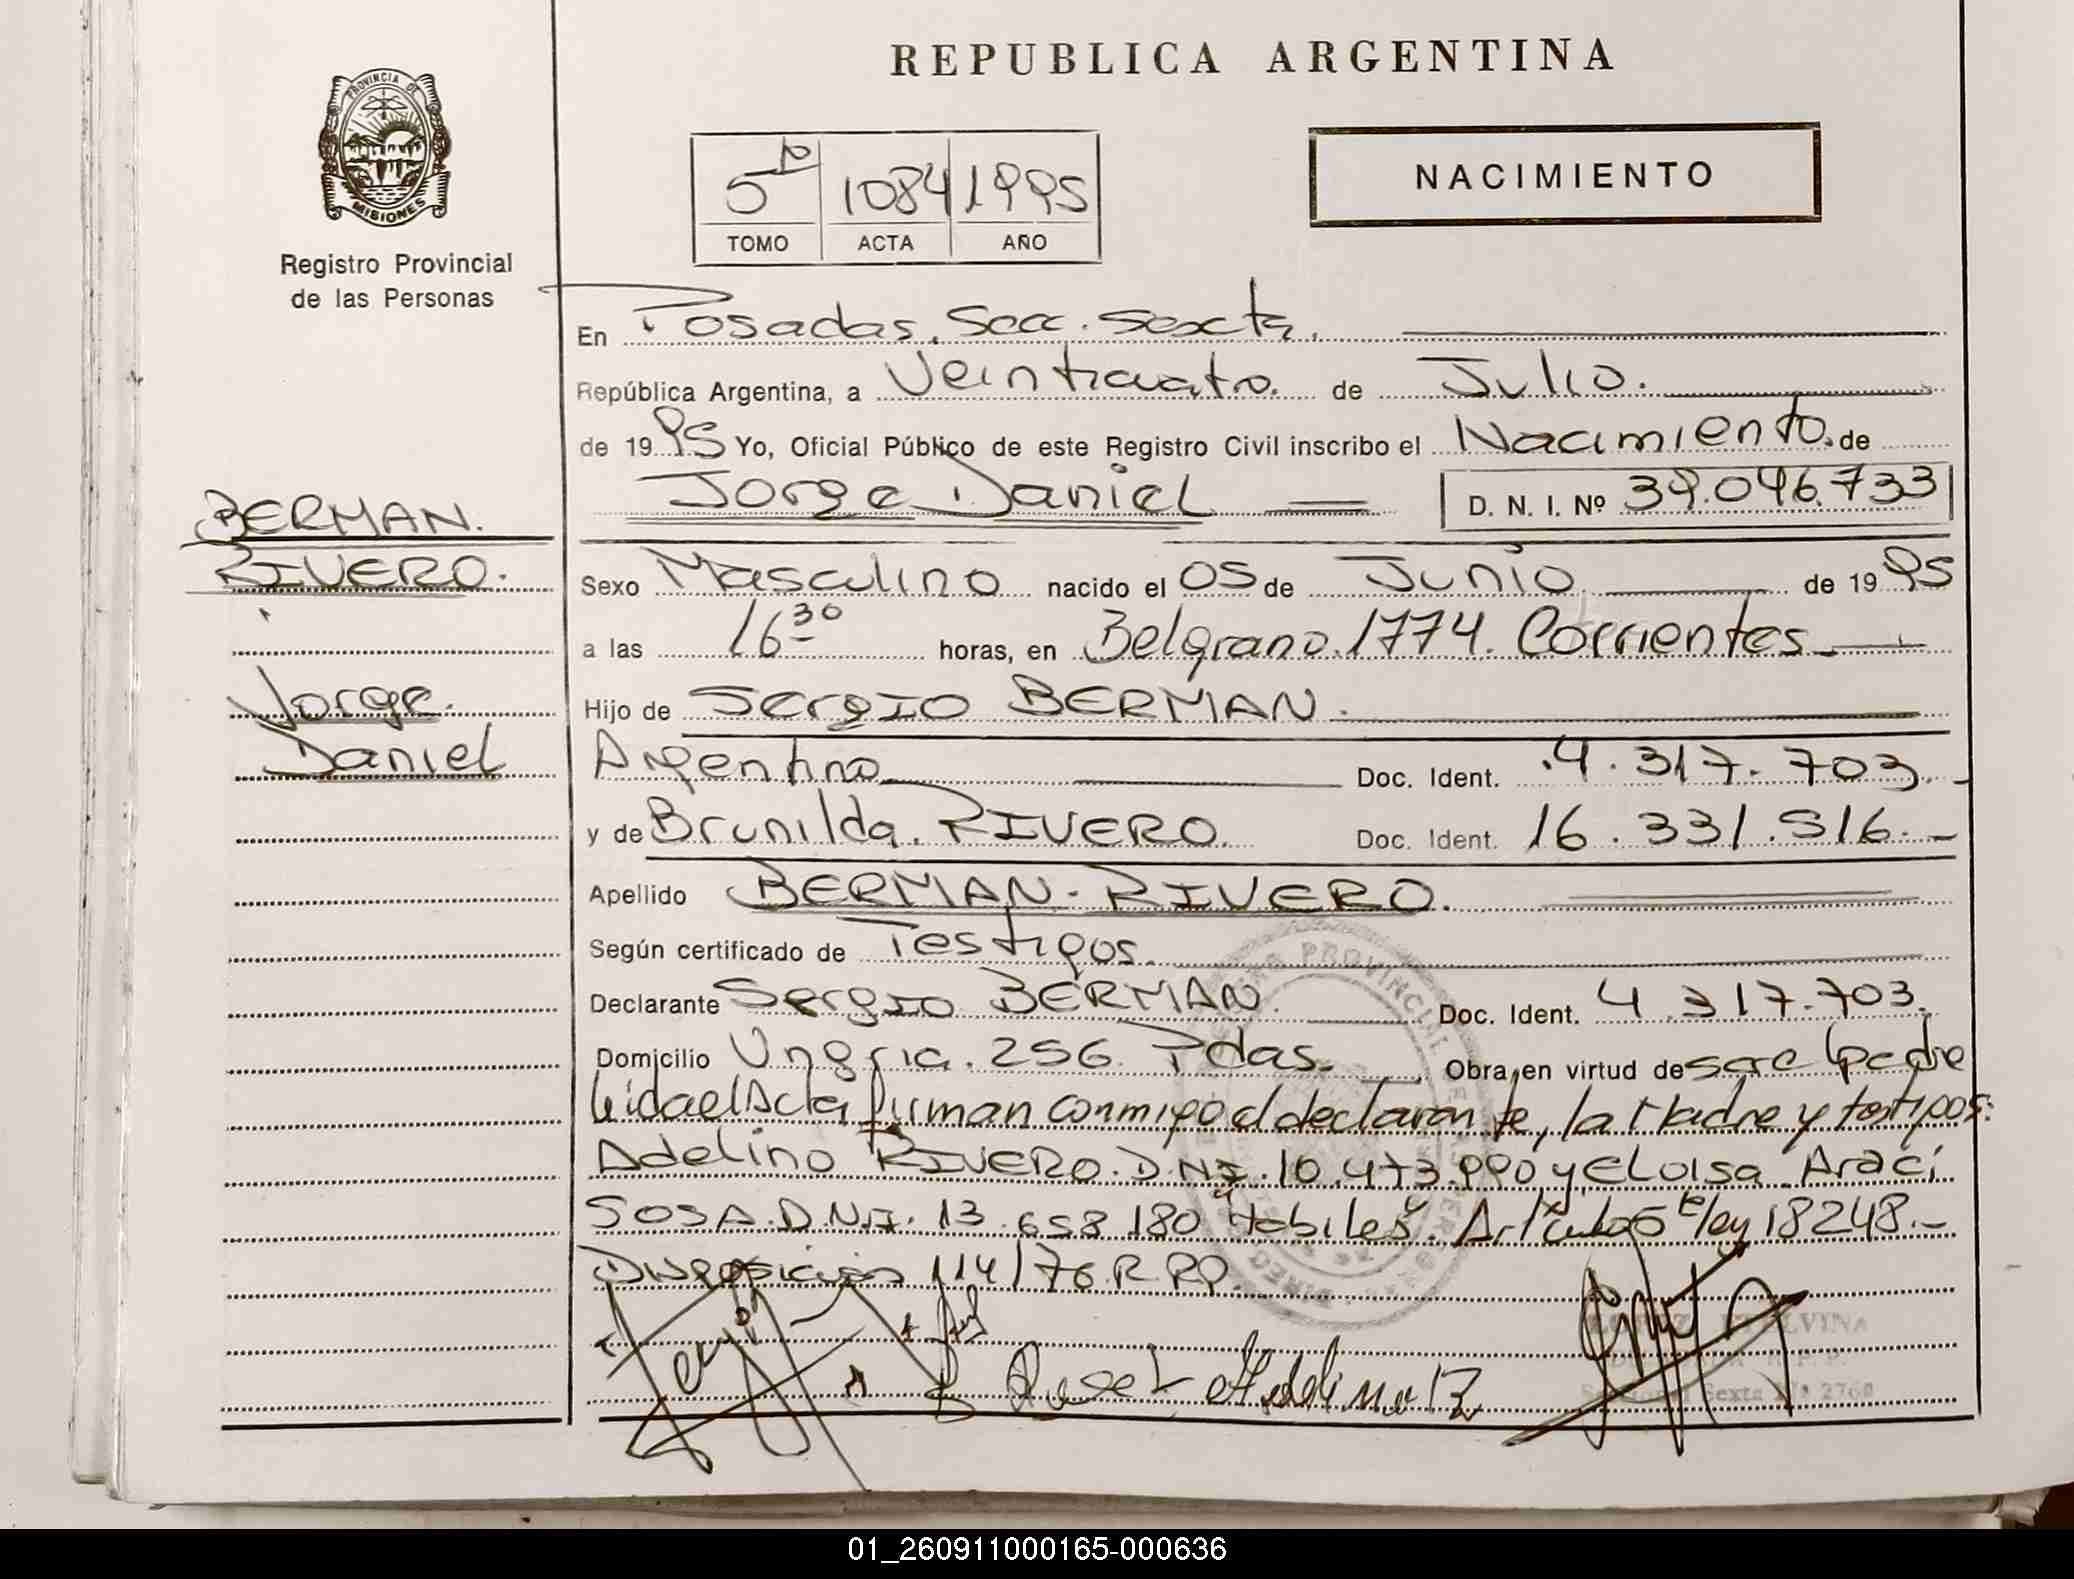 REPUBLICA ARGENTINA
PROVINCIA DE
MISIONES
Registro Provincial
de las Personas
5º 1084 1995
TOMO ACTA AÑO
NACIMIENTO
En Posadas. Secc. Sexta.
República Argentina, a Veinticuatro. de Julio.
de 1995 Yo, Oficial Público de este Registro Civil inscribo el Nacimiento. de
Jorge Daniel D. N. I. Nº 39.046.733
BERMAN.
RIVERO.
Jorge.
Daniel
Sexo Masculino nacido el 05 de Junio de 1995
a las 16 30 horas, en Belgrano. 1774. Corrientes
Hijo de Sergio BERMAN.
Argentino Doc. Ident. 4.317.703.-
y de Brunilda. RIVERO. Doc. Ident. 16.331.516.-
Apellido BERMAN - RIVERO.
Según certificado de Testigos.
Declarante Sergio BERMAN. Doc. Ident. 4.317.703.
Domicilio Ungria. 256. Pdas. Obra en virtud de ser el padre
leida el Acta firman conmigo el declarante, la Madre y testigos:
Adelino RIVERO. D.N.I. 10.473.990 y ELOISA. Araci
SOSA. D.N.I. 13.658.180 Habiles. Articulo 5 Ley 18248.-
Disposicion 114/76. R.P.P.
Adelino R
Seccional Sexta Nº 2760
01_260911000165-000636